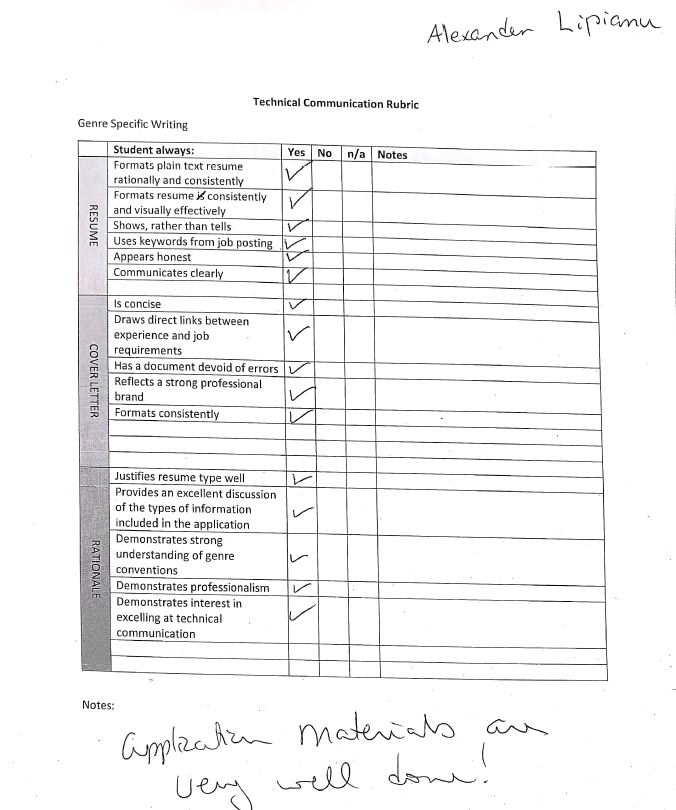 Alexander Lipianu
Technical Communication Rubric
Genre Specific Writing
Student always: Yes No n/a Notes
RESUME
Formats plain text resume
rationally and consistently ✓
Formats resume is consistently
and visually effectively ✓
Shows, rather than tells ✓
Uses keywords from job posting ✓
Appears honest ✓
Communicates clearly ✓
COVER LETTER
Is concise ✓
Draws direct links between
experience and job
requirements ✓
Has a document devoid of errors ✓
Reflects a strong professional
brand ✓
Formats consistently ✓
RATIONALE
Justifies resume type well ✓
Provides an excellent discussion
of the types of information
included in the application ✓
Demonstrates strong
understanding of genre
conventions ✓
Demonstrates professionalism ✓
Demonstrates interest in
excelling at technical
communication ✓
Notes:
Application materials are
very well done!